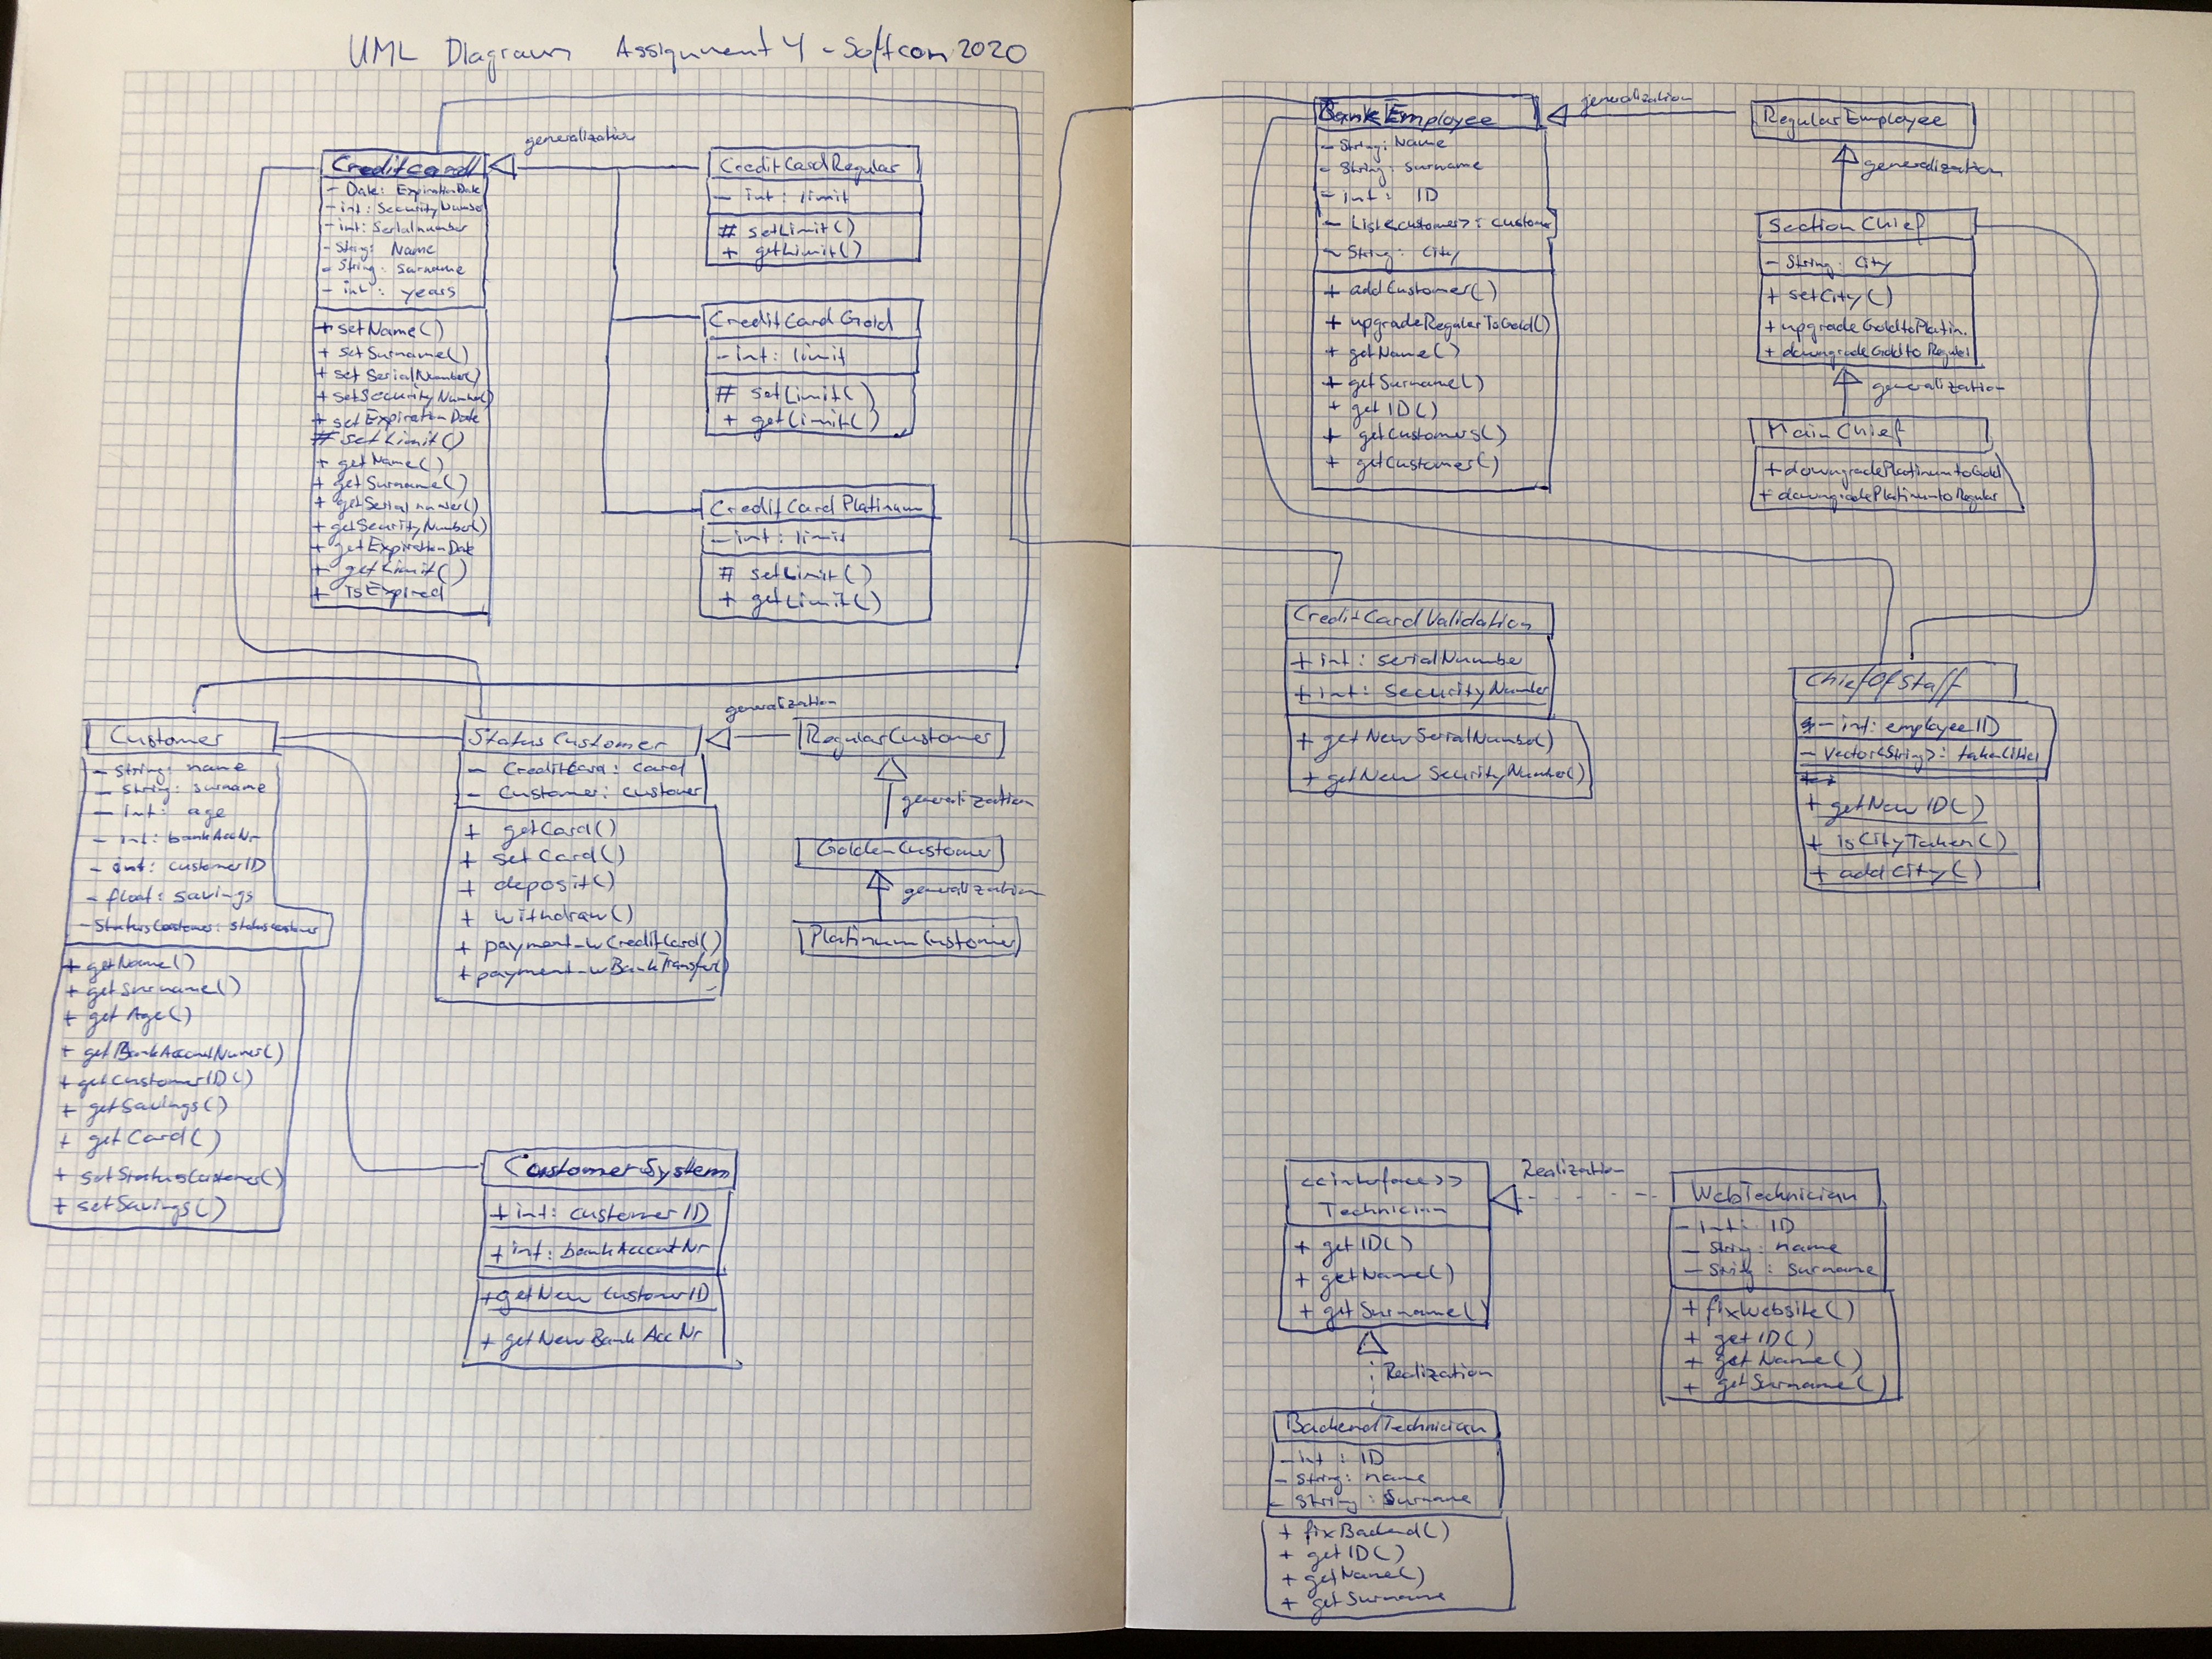 UML Diagram Assignment 4 - Softcon 2020
CreditCard
- Date: ExpirationDate
- int: SecurityNumber
- int: Serialnumber
- String: Name
- String: surname
- int: years
+ setName()
+ setSurname()
+ setSerialNumber()
+ setSecurityNumber()
+ setExpirationDate
# setLimit()
+ getName()
+ getSurname()
+ getSerialnumber()
+ getSecurityNumber()
+ getExpirationDate
+ getLimit()
+ isExpired
generalization
CreditCardRegular
- int: limit
# setLimit()
+ getLimit()
CreditCardGold
- int: limit
# setLimit()
+ getLimit()
CreditCardPlatinum
- int: limit
# setLimit()
+ getLimit()
Customer
- String: name
- String: surname
- int: age
- int: bankAccNr
- int: customerID
- float: savings
- StatusCustomer: statuscustomer
+ getName()
+ getSurname()
+ getAge()
+ getBankAccountNumer()
+ getCustomerID()
+ getSavings()
+ getCard()
+ setStatusCustomer()
+ setSavings()
StatusCustomer
- CreditCard: card
- Customer: customer
+ getCard()
+ setCard()
+ deposit()
+ withdraw()
+ payment_wCreditCard()
+ payment_wBankTransfer()
generalization
RegularCustomer
generalization
GoldenCustomer
generalization
PlatinumCustomer
CustomerSystem
+ int: customerID
+ int: bankAccentNr
+ getNewCustomerID
+ getNewBankAccNr
BankEmployee
- String: Name
- String: surname
- int: ID
- List<customer>: customer
- String: City
+ addCustomer()
+ upgradeRegularToGold()
+ getName()
+ getSurname()
+ getID()
+ getCustomers()
+ getCustomer()
generalization
RegularEmployee
generalization
SectionChief
- String: City
+ setCity()
+ upgradeGoldtoPlatin.
+ downgradeGoldtoRegular
generalization
MainChief
+ downgradePlatinumtoGold
+ downgradePlatinumtoRegular
CreditCardValidation
+ int: serialNumber
+ int: SecurityNumber
+ getNewSerialNumber()
+ getNewSecurityNumber()
ChiefOfStaff
- int: employeeID
- Vector<String>: takenCities
+ getNewID()
+ isCityTaken()
+ addCity()
<<interface>>
Technician
+ getID()
+ getName()
+ getSurname()
Realization
WebTechnician
- int: ID
- String: name
- String: Surname
+ fixWebsite()
+ getID()
+ getName()
+ getSurname()
Realization
BackendTechnician
- int: ID
- String: name
- String: Surname
+ fixBackend()
+ getID()
+ getName()
+ getSurname